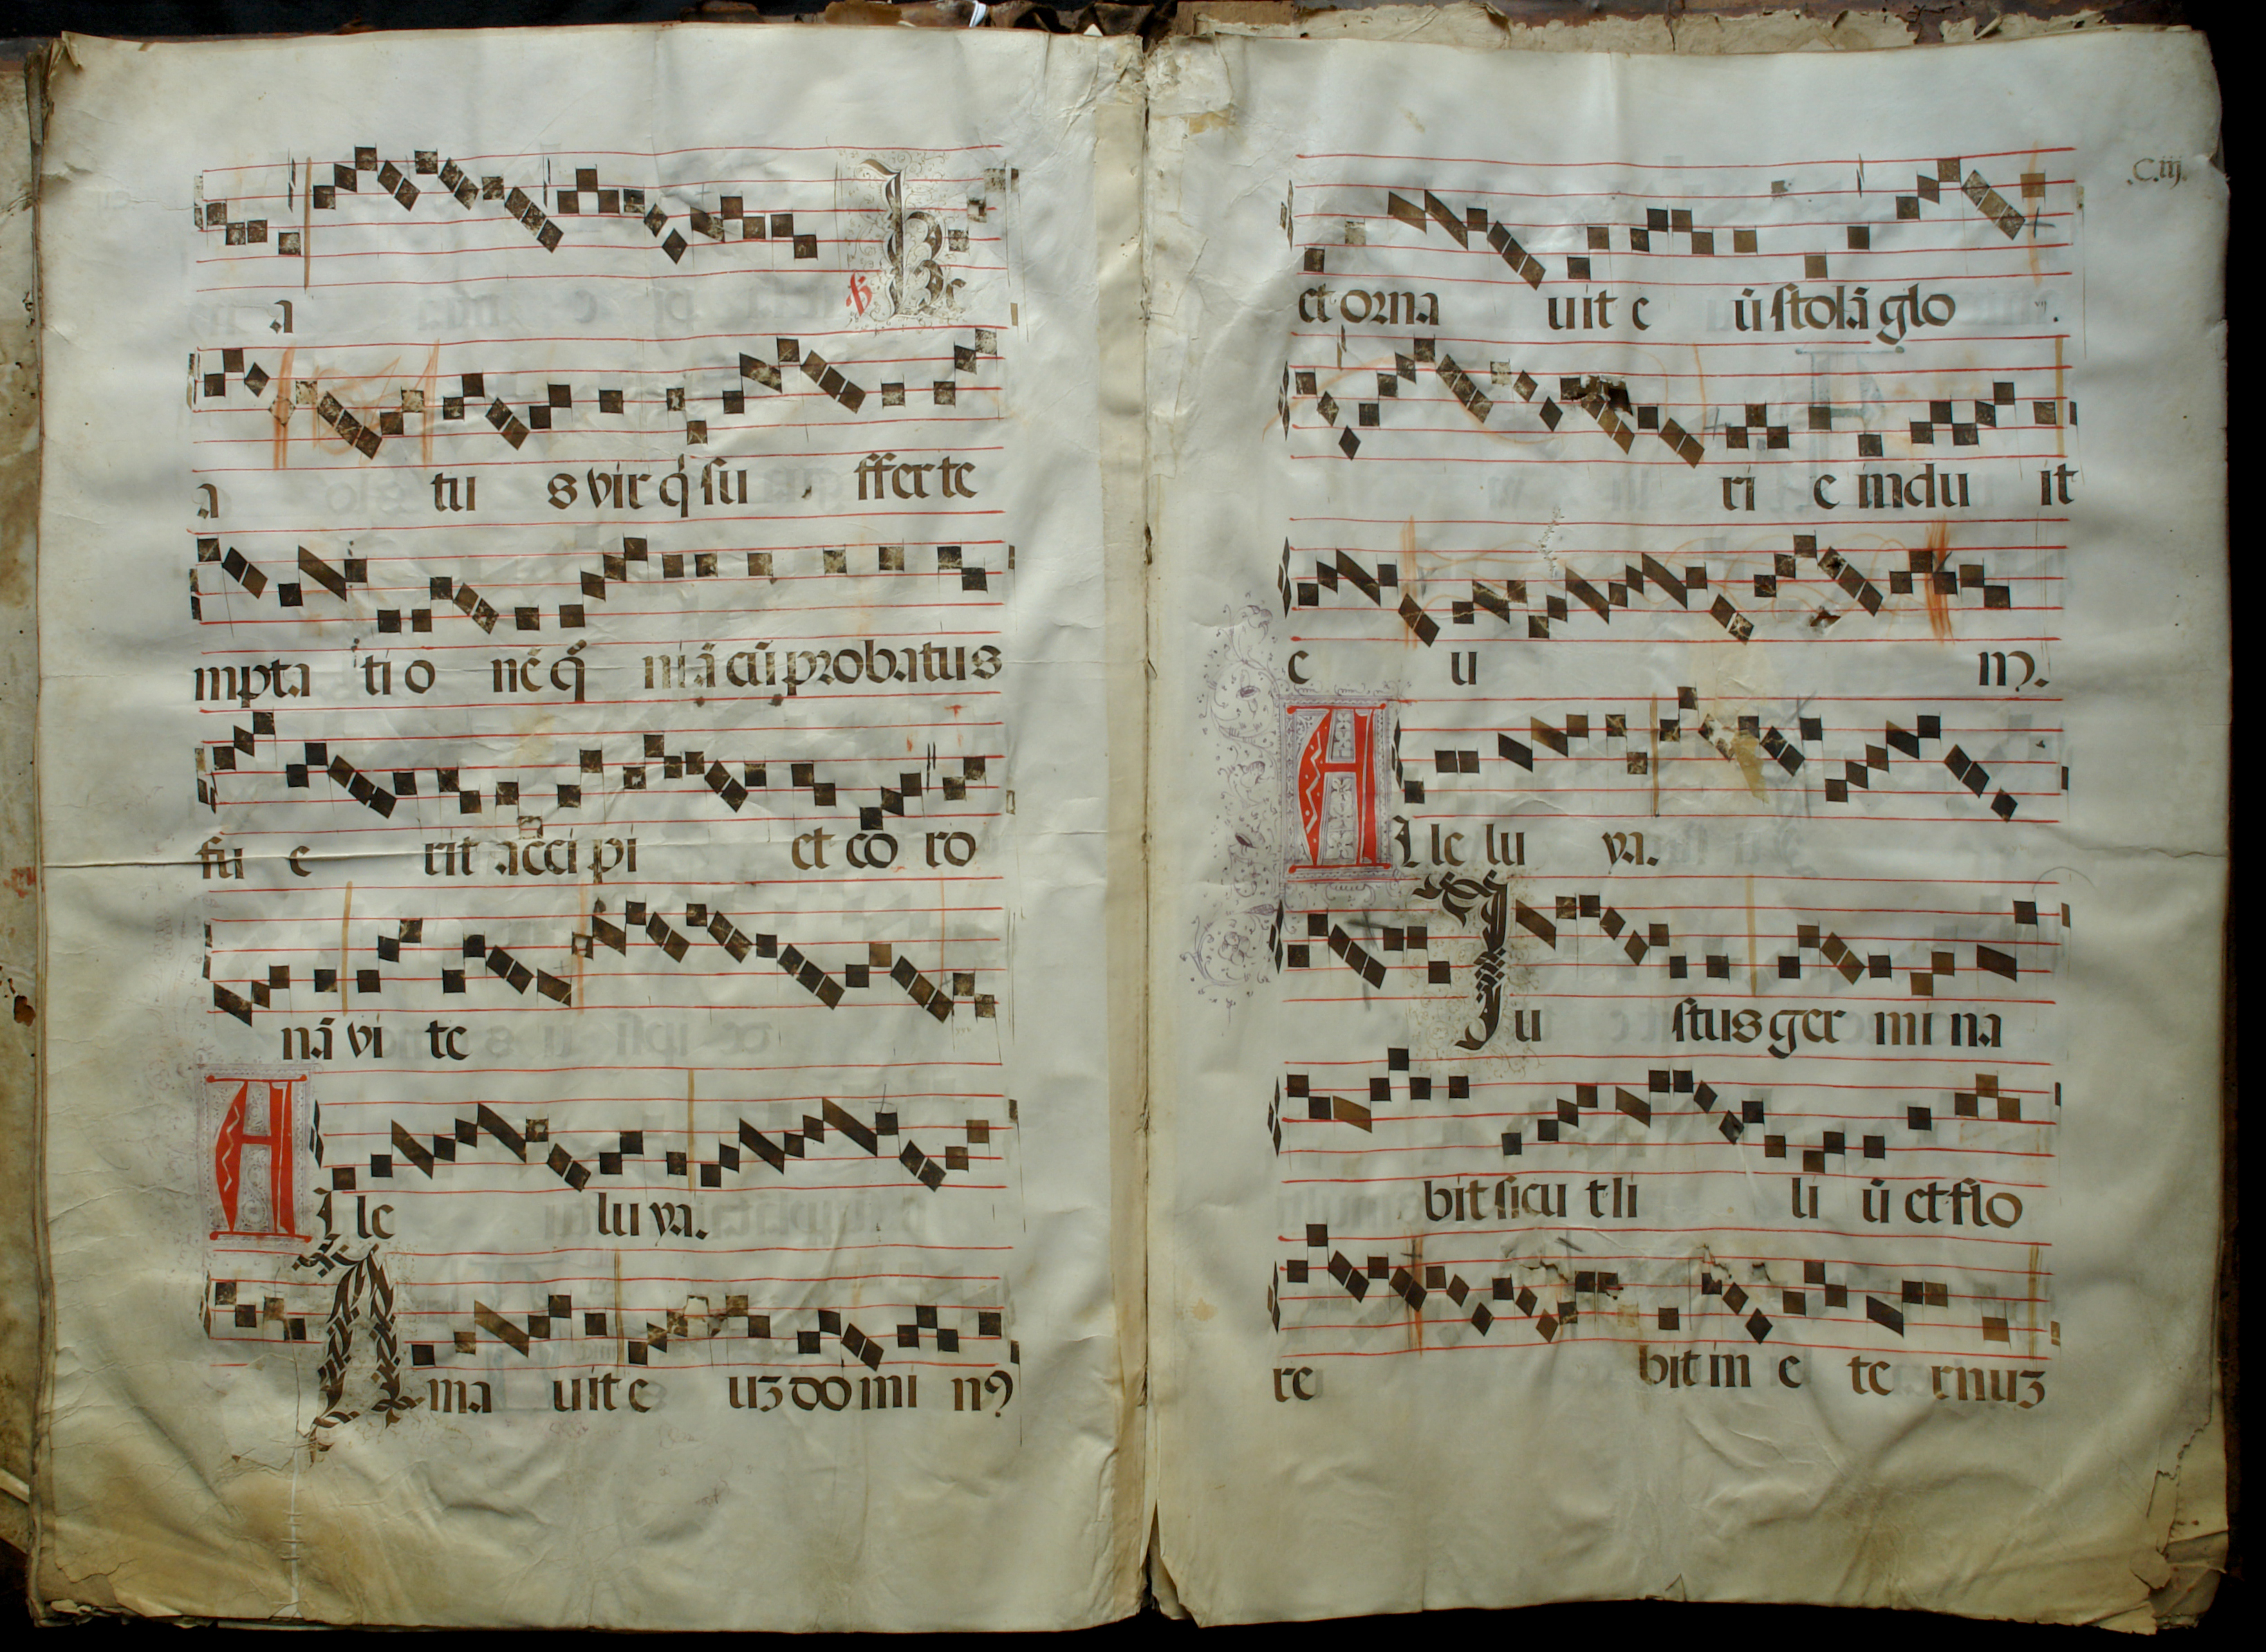 a ℣ Be
a tu s vir q̇ su fferte
mpta ti o nē q̄ niā cū probatus
fu e rit acci pi et co ro
nā vi te
A lle lu ya.
A ma uit e uʒ do mi nꝰ
.C.iij.
et orna uit e ū stolā glo
ri e indu it
e u m.
A lle lu ya.
Ju stus ger mi na
bit sicu t li li ū et flo
re bit in e te rnuʒ